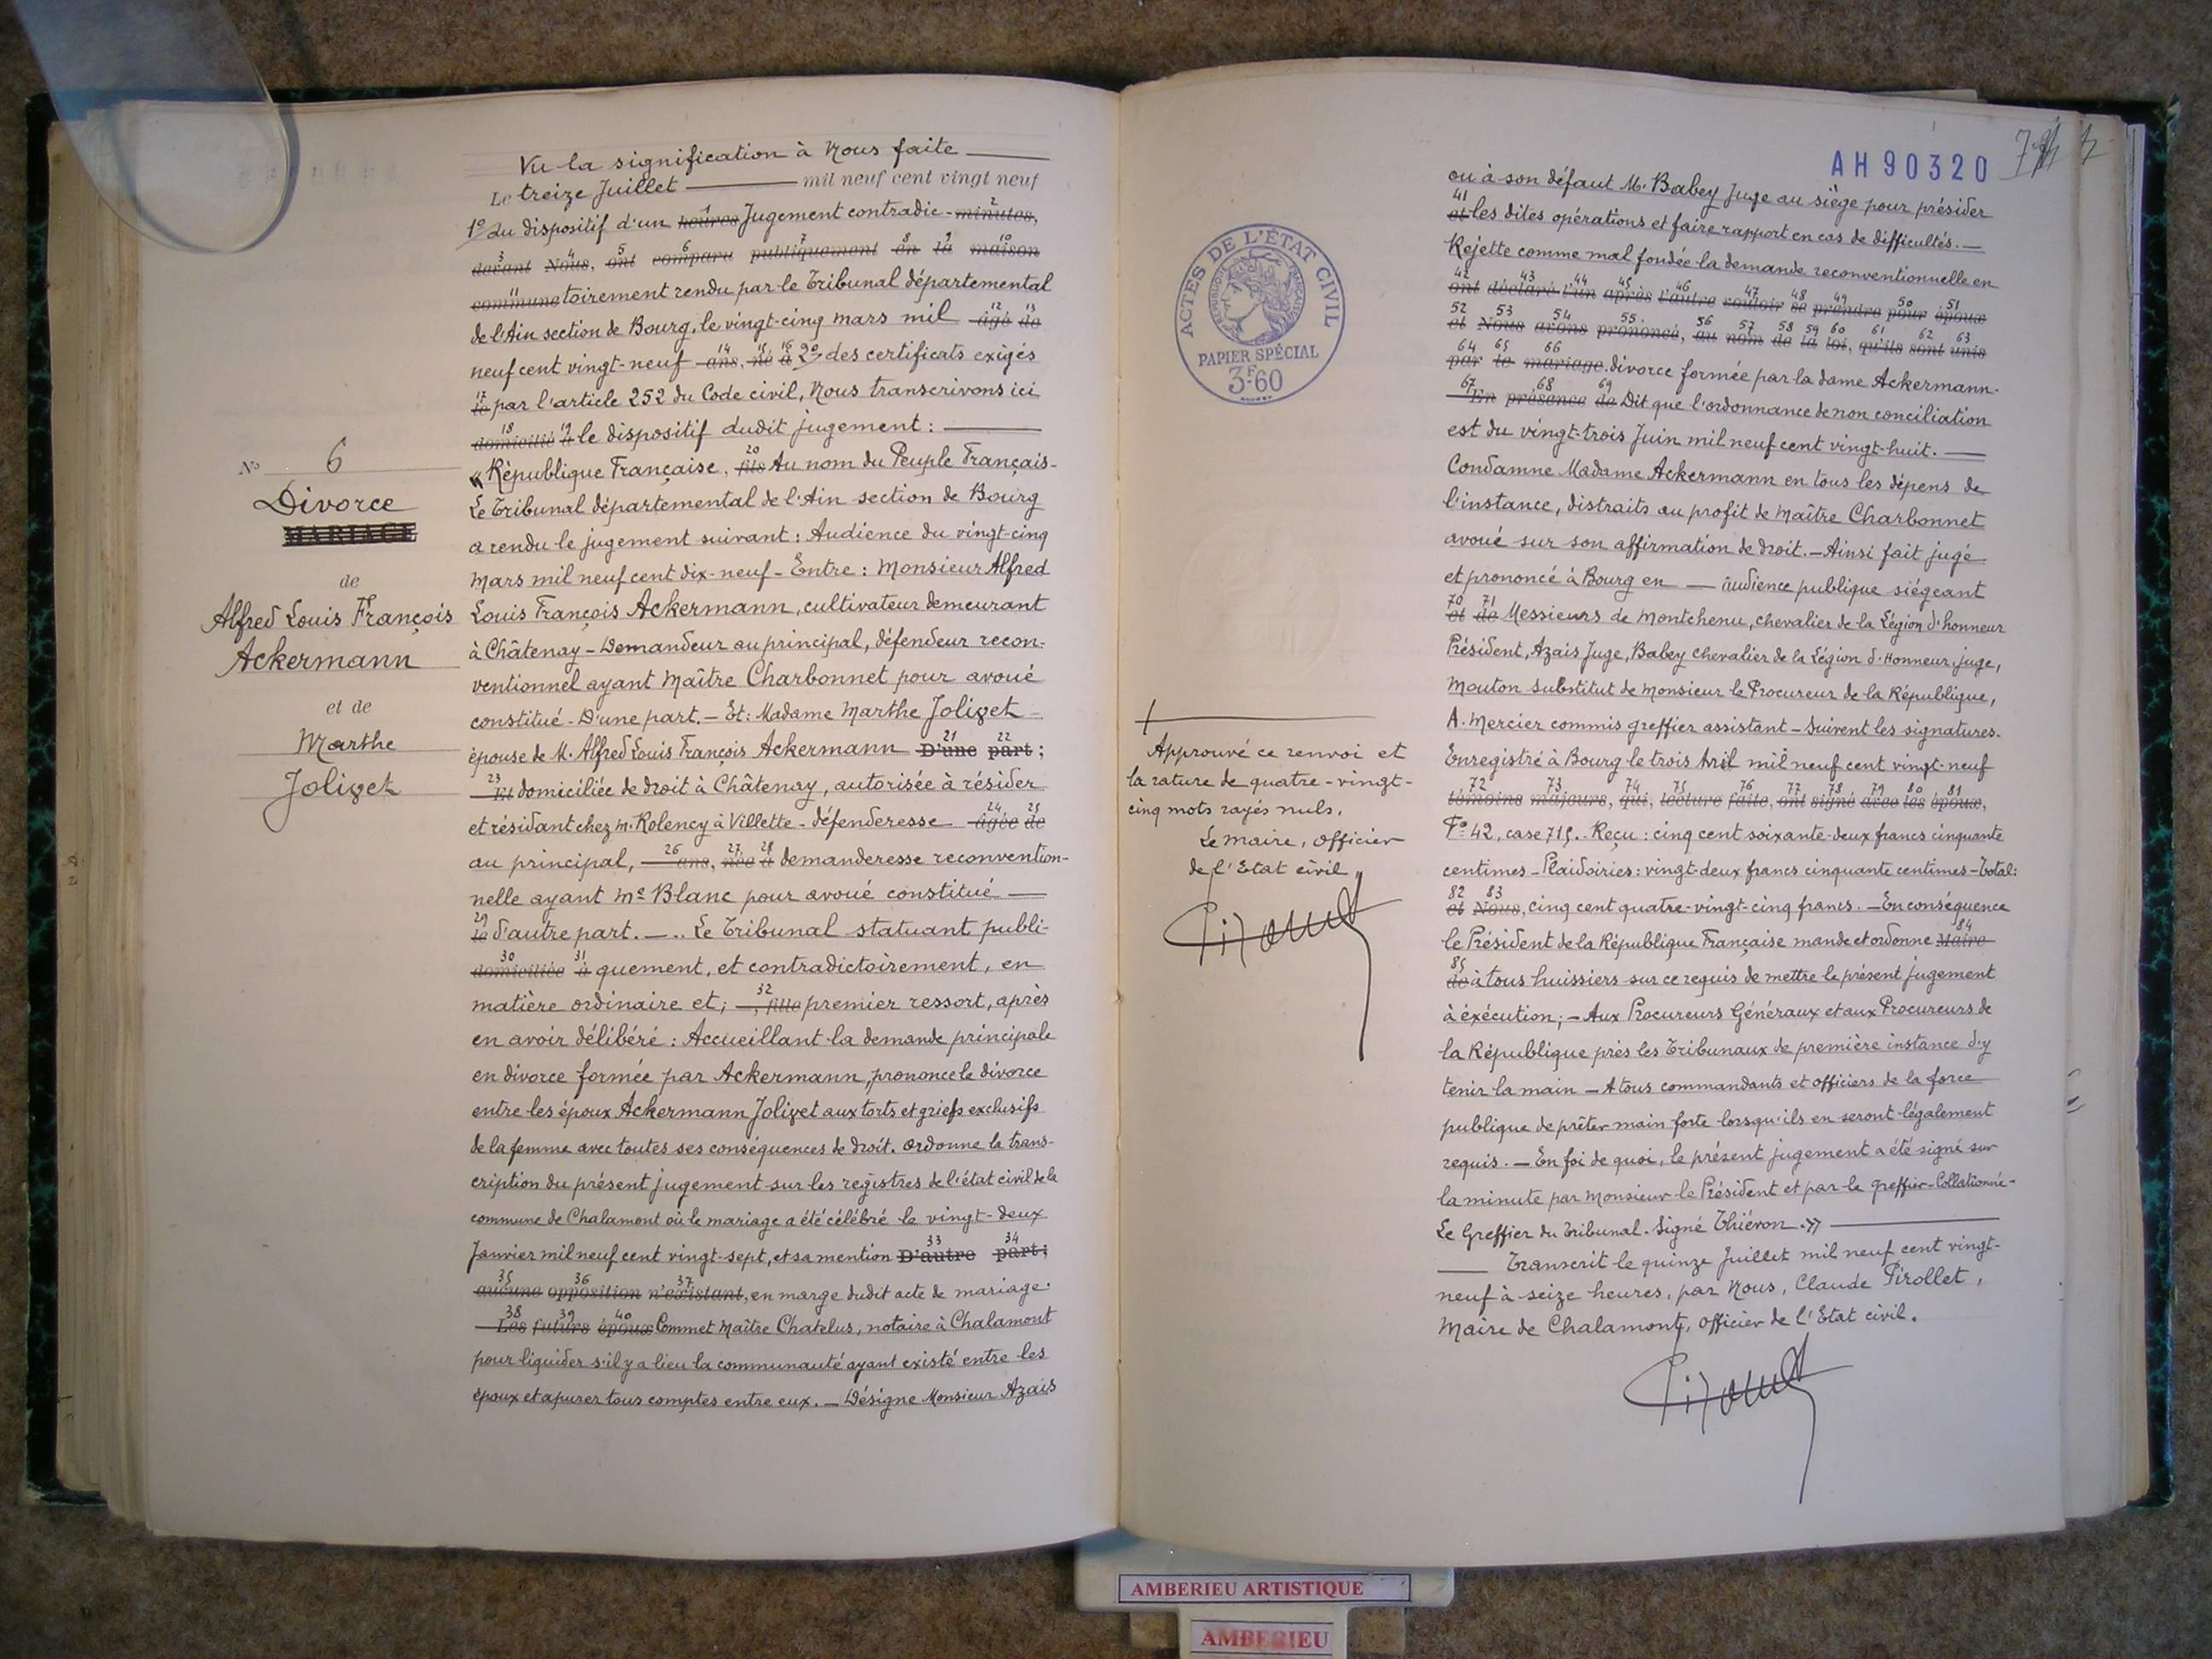 Vu la signification à Nous faite
Le treize Juillet mil neuf cent vingt neuf
1
2
1º du dispositif d'un heures Jugement contradic- minutes,
3 4 5 6 7 8 9 10
devant Nous, ont comparu publiquement en la maison
11
commune toirement rendu par le Tribunal départemental
12 13
de l'Ain section de Bourg, le vingt-cinq mars mil âgé de
14 15 16
neuf cent vingt-neuf ans, né à 2º des certificats exigés
17
le par l'article 252 du Code civil, Nous transcrivons ici
18 19
domicilié à le dispositif dudit jugement :
20
« République Française, fils Au nom du Peuple Français-
Le Tribunal départemental de l'Ain section de Bourg
a rendu le jugement suivant : Audience du vingt-cinq
Mars mil neuf cent dix-neuf - Entre : Monsieur Alfred
Louis François Ackermann, cultivateur demeurant
à Châtenay - Demandeur au principal, défendeur recon-
ventionnel ayant Maître Charbonnet pour avoué
constitué - D'une part. - Et : Madame Marthe Jolivet -
21 22
épouse de M. Alfred Louis François Ackermann D'une part ;
23
Et domiciliée de droit à Châtenay, autorisée à résider
24 25
et résidant chez M. Rolency à Villette - défenderesse âgée de
26 27 28
au principal, ans, née à demanderesse reconvention-
nelle ayant Me Blanc pour avoué constitué
29
le d'autre part. - .. Le Tribunal statuant publi-
30 31
domiciliée à quement, et contradictoirement, en
32
matière ordinaire et ; , fille premier ressort, après
en avoir délibéré : Accueillant la demande principale
en divorce formée par Ackermann, prononce le divorce
entre les époux Ackermann Jolivet aux torts et griefs exclusifs
de la femme avec toutes ses conséquences de droit. Ordonne la trans-
cription du présent jugement sur les registres de l'état civil de la
commune de Chalamont où le mariage a été célébré le vingt-deux
33 34
Janvier mil neuf cent vingt-sept, et sa mention D'autre part ;
35 36 37
aucune opposition n'existant, en marge dudit acte de mariage.
38 39 40
Les futurs époux Commet Maître Chatelus, notaire à Chalamont
pour liquider s'il y a lieu la communauté ayant existé entre les
époux et apurer tous comptes entre eux. - Désigne Monsieur Azais
Nº 6
Divorce
MARIAGE
de
Alfred Louis François
Ackermann
et de
Marthe
Jolivet
ACTES DE L'ÉTAT CIVIL
RÉPUBLIQUE FRANÇAISE
PAPIER SPÉCIAL
3F60
Approuvé ce renvoi et
la rature de quatre-vingt-
cinq mots rayés nuls.
Le Maire, Officier
de l'Etat civil,
AH 90320
ou à son défaut M. Babey Juge au siège pour présider
41
et les dites opérations et faire rapport en cas de difficultés. -
Rejette comme mal fondée la demande reconventionnelle en
42 43 44 45 46 47 48 49 50 51
ont déclaré l'un après l'autre vouloir se prendre pour époux
52 53 54 55 56 57 58 59 60 61 62 63
et Nous avons prononcé, au nom de la loi, qu'ils sont unis
64 65 66
par le mariage. divorce formée par la dame Ackermann.
67 68 69
En présence de Dit que l'ordonnance de non conciliation
est du vingt-trois Juin mil neuf cent vingt-huit. -
Condamne Madame Ackermann en tous les dépens de
l'instance, distraits au profit de Maître Charbonnet
avoué sur son affirmation de droit. - Ainsi fait jugé
et prononcé à Bourg en - Audience publique siégeant
70 71
et de Messieurs de Montchenu, chevalier de la Légion d'honneur
Président, Azais Juge, Babey chevalier de la Légion d'Honneur, juge,
Mouton substitut de Monsieur le Procureur de la République,
A. Mercier commis greffier assistant - Suivent les signatures.
Enregistré à Bourg le trois Avril mil neuf cent vingt-neuf
72 73 74 75 76 77 78 79 80 81
témoins majeurs, qui, lecture faite, ont signé avec les époux,
Fº 42, case 715. Reçu : cinq cent soixante-deux francs cinquante
centimes - Plaidoiries : vingt-deux francs cinquante centimes - Total :
82 83
et Nous, cinq cent quatre-vingt-cinq francs. - En conséquence
84
le Président de la République Française mande et ordonne Maire
85
de à tous huissiers sur ce requis de mettre le présent jugement
à exécution ; - Aux Procureurs Généraux et aux Procureurs de
la République près les Tribunaux de première instance d'y
tenir la main - A tous commandants et officiers de la force
publique de prêter main forte lorsqu'ils en seront légalement
requis. - En foi de quoi, le présent jugement a été signé sur
la minute par Monsieur le Président et par le greffier - Collationné -
Le Greffier du Tribunal. Signé Thiéron. »
Transcrit le quinze Juillet mil neuf cent vingt-
neuf à seize heures, par Nous, Claude Pirollet,
Maire de Chalamont, officier de l'Etat civil.
AMBERIEU ARTISTIQUE
AMBERIEU